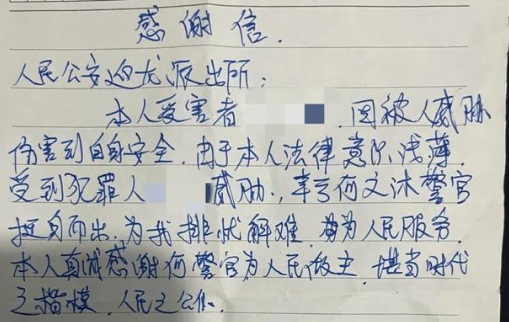 感谢信.
人民公安迎龙派出所:
本人受害者 , 因被人威胁
伤害到自身安全, 由于本人法律意识浅薄,
受到犯罪人 威胁, 幸亏何文沐警官
挺身而出, 为我排忧解难, 为人民服务,
本人真诚感谢何警官为人民做主, 堪当时代
之楷模, 人民之公仆.